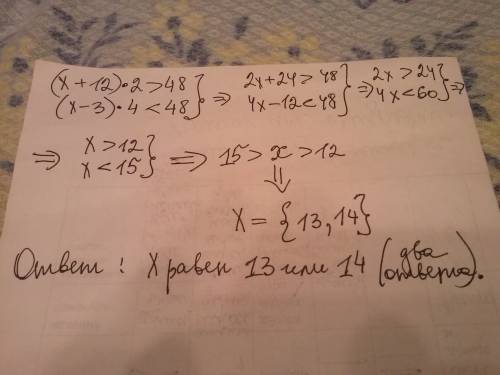 (x+12)·2>48
(x-3)·4<48} ⇒ 2x+24>48
4x-12<48} ⇒ 2x>24
4x<60} ⇒
⇒ x>12
x<15} ⇒ 15>x>12
⇓
X={13,14}
Ответ: X равен 13 или 14 (два ответа).